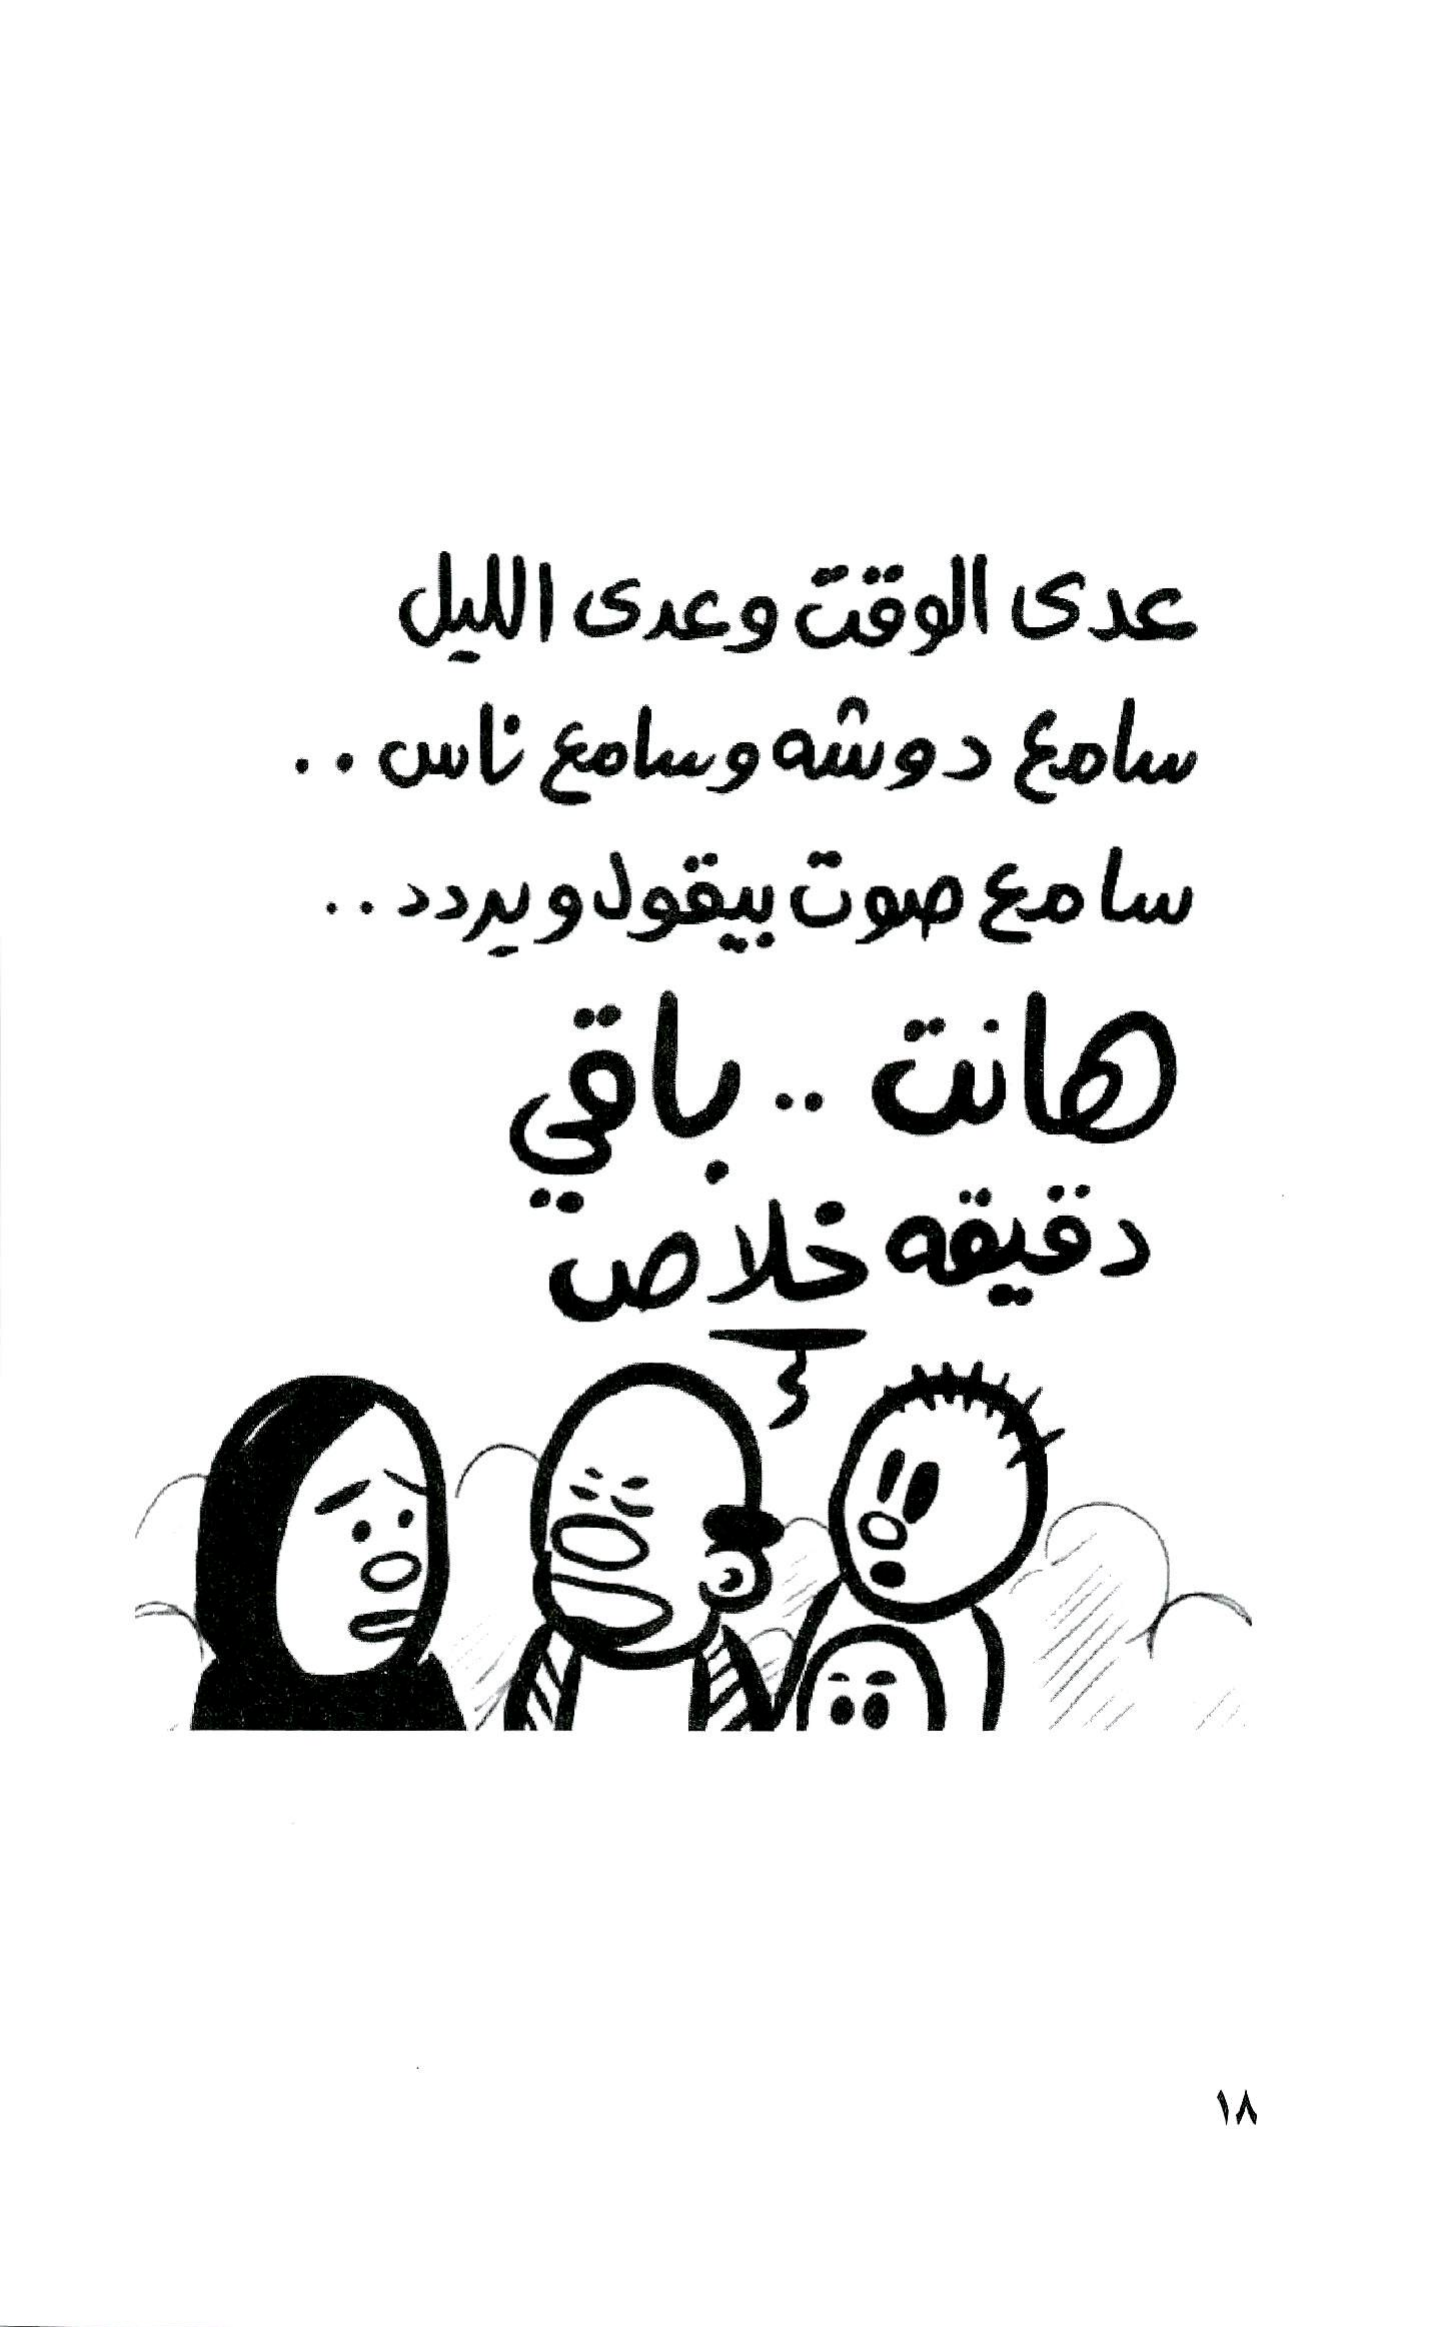 عدى الوقت وعدى الليل
سامع دوشه وسامع ناس ..
سامع صوت بيقول ويردد ..
هانت .. باقي
دقيقه خلاص
١٨